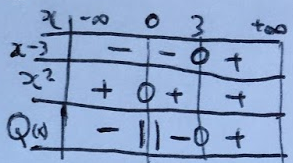 x | -∞ 0 3 +∞
x-3 | - | - 0 +
x² | + 0 + | +
Q(x) | - || - 0 +